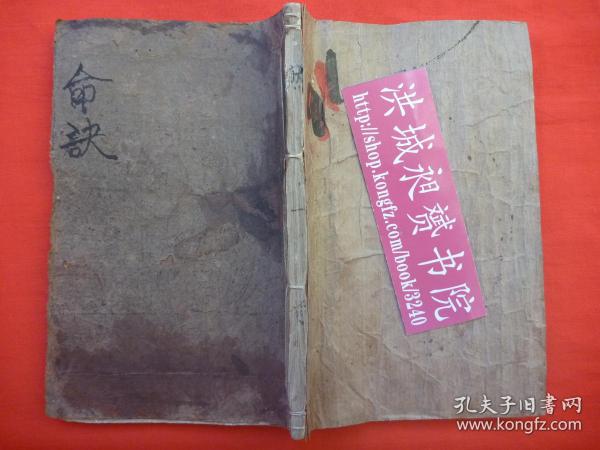 命訣
洪城昶赟书院
http://shop.kongfz.com/book/3240
孔夫子旧书网
www.kongfz.com